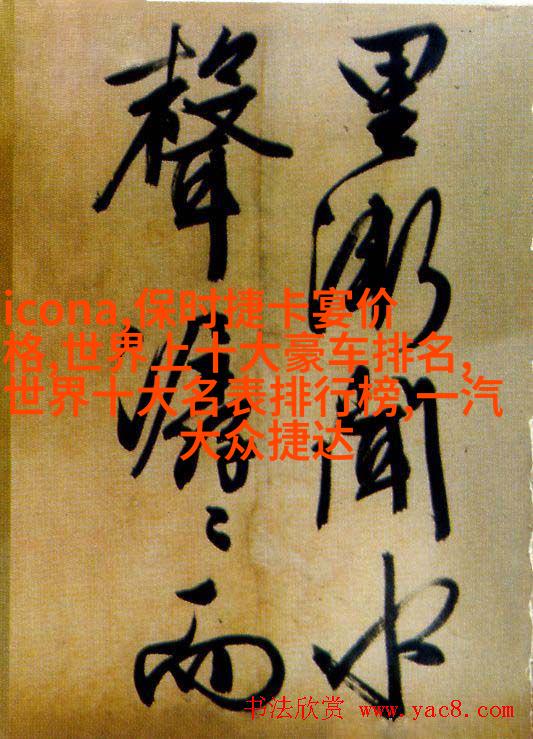 里漸聞水
聲潺〻而
icona,保时捷卡宴价
格,世界上十大豪车排名,
世界十大名表排行榜,一汽
大众捷达
书法欣赏 www.yac8.com